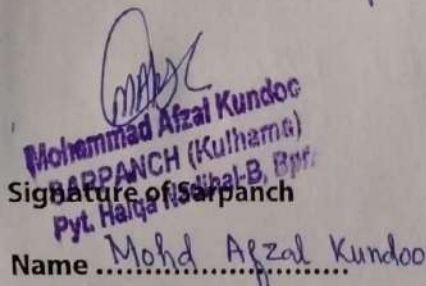 Mohammad Afzal Kundoo
SARPANCH (Kulhama)
Pyt. Halqa Nadihal-B, Bpr.
Signature of Sarpanch
Name Mohd Afzal Kundoo